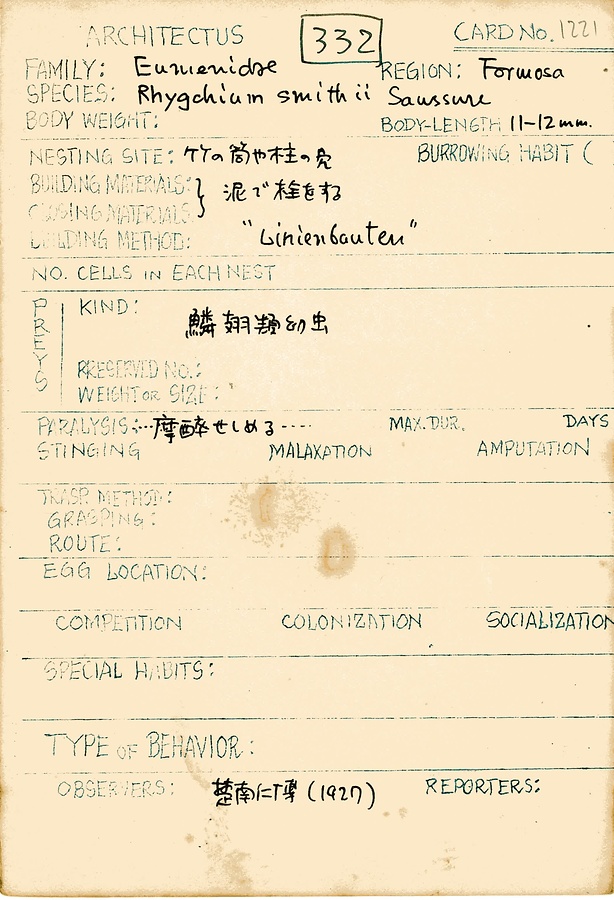 ARCHITECTUS 332 CARD No. 1221
FAMILY: Eumenidae REGION: Formosa
SPECIES: Rhygchium smithii Saussure
BODY WEIGHT: BODY-LENGTH 11-12mm.
NESTING SITE: 竹の筒や柱の穴 BURROWING HABIT (
BUILDING MATERIALS: } 泥で栓をする
CLOSING MATERIALS:
BUILDING METHOD: "Linienbauten"
NO. CELLS IN EACH NEST
PREYS
KIND:
鱗翅類幼虫
PRESERVED NO.:
WEIGHT OR SIZE:
PARALYSIS: ...摩酔せしめる..... MAX. DUR. DAYS
STINGING MALAXATION AMPUTATION
TRASP. METHOD:
GRASPING:
ROUTE:
EGG LOCATION:
COMPETITION COLONIZATION SOCIALIZATION
SPECIAL HABITS:
TYPE OF BEHAVIOR:
OBSERVERS: 楚南仁博 (1927) REPORTERS: